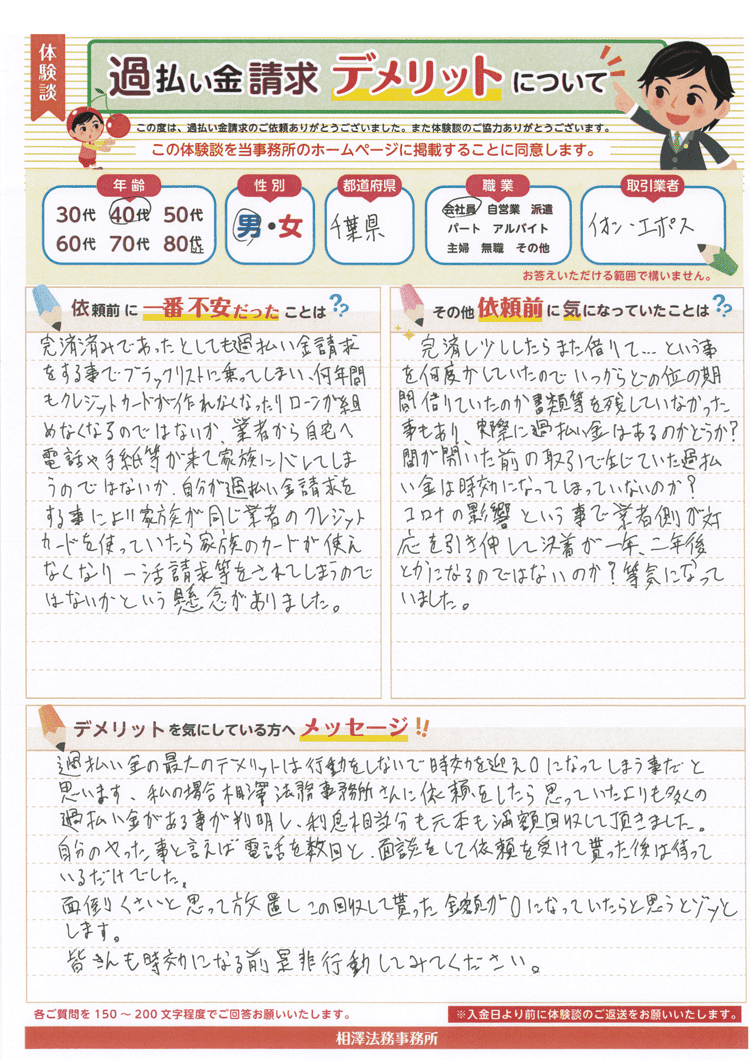 体験談
過払い金請求 デメリットについて
この度は、過払い金請求のご依頼ありがとうございました。また体験談のご協力ありがとうございます。
この体験談を当事務所のホームページに掲載することに同意します。
年齢
30代 40代 50代
60代 70代 80代以上
性別
男・女
都道府県
千葉県
職業
会社員 自営業 派遣
パート アルバイト
主婦 無職 その他
取引業者
イオン・エポス
お答えいただける範囲で構いません。
依頼前に一番不安だったことは??
完済済みであったとしても過払い金請求
をする事でブラックリストに乗ってしまい、何年間
もクレジットカードが作れなくなったりローンが組
めなくなるのではないか、業者から自宅へ
電話や手紙等が来て家族にバレてしま
うのではないか、自分が過払い金請求を
する事により家族が同じ業者のクレジット
カードを使っていたら家族のカードが使え
なくなり一活請求等をされてしまうので
はないかという懸念がありました。
その他依頼前に気になっていたことは??
完済し少ししたらまた借りて…という事
を何度かしていたのでいつからどの位の期
間借りていたのか書類等を残していなかった
事もあり、実際に過払い金はあるのかどうか?
間が開いた前の取引で生じていた過払
い金は時効になってしまっていないのか?
コロナの影響という事で業者側が対
応を引き伸して決着が一年、二年後
とかになるのではないのか?等気になって
いました。
デメリットを気にしている方へメッセージ!!
過払い金の最大のデメリットは行動をしないで時効を迎え0になってしまう事だと
思います、私の場合相澤法務事務所さんに依頼をしたら思っていたよりも多くの
過払い金がある事が判明し、利息相当分も元本も満額回収して頂きました。
自分のやった事と言えば電話を数回と、面談をして依頼を受けて貰った後は待って
いるだけでした。
面倒くさいと思って放置しこの回収して貰った金額が0になっていたらと思うとゾッと
します。
皆さんも時効になる前是非行動してみてください。
各ご質問を150～200文字程度でご回答お願いいたします。
※入金日より前に体験談のご返送をお願いいたします。
相澤法務事務所